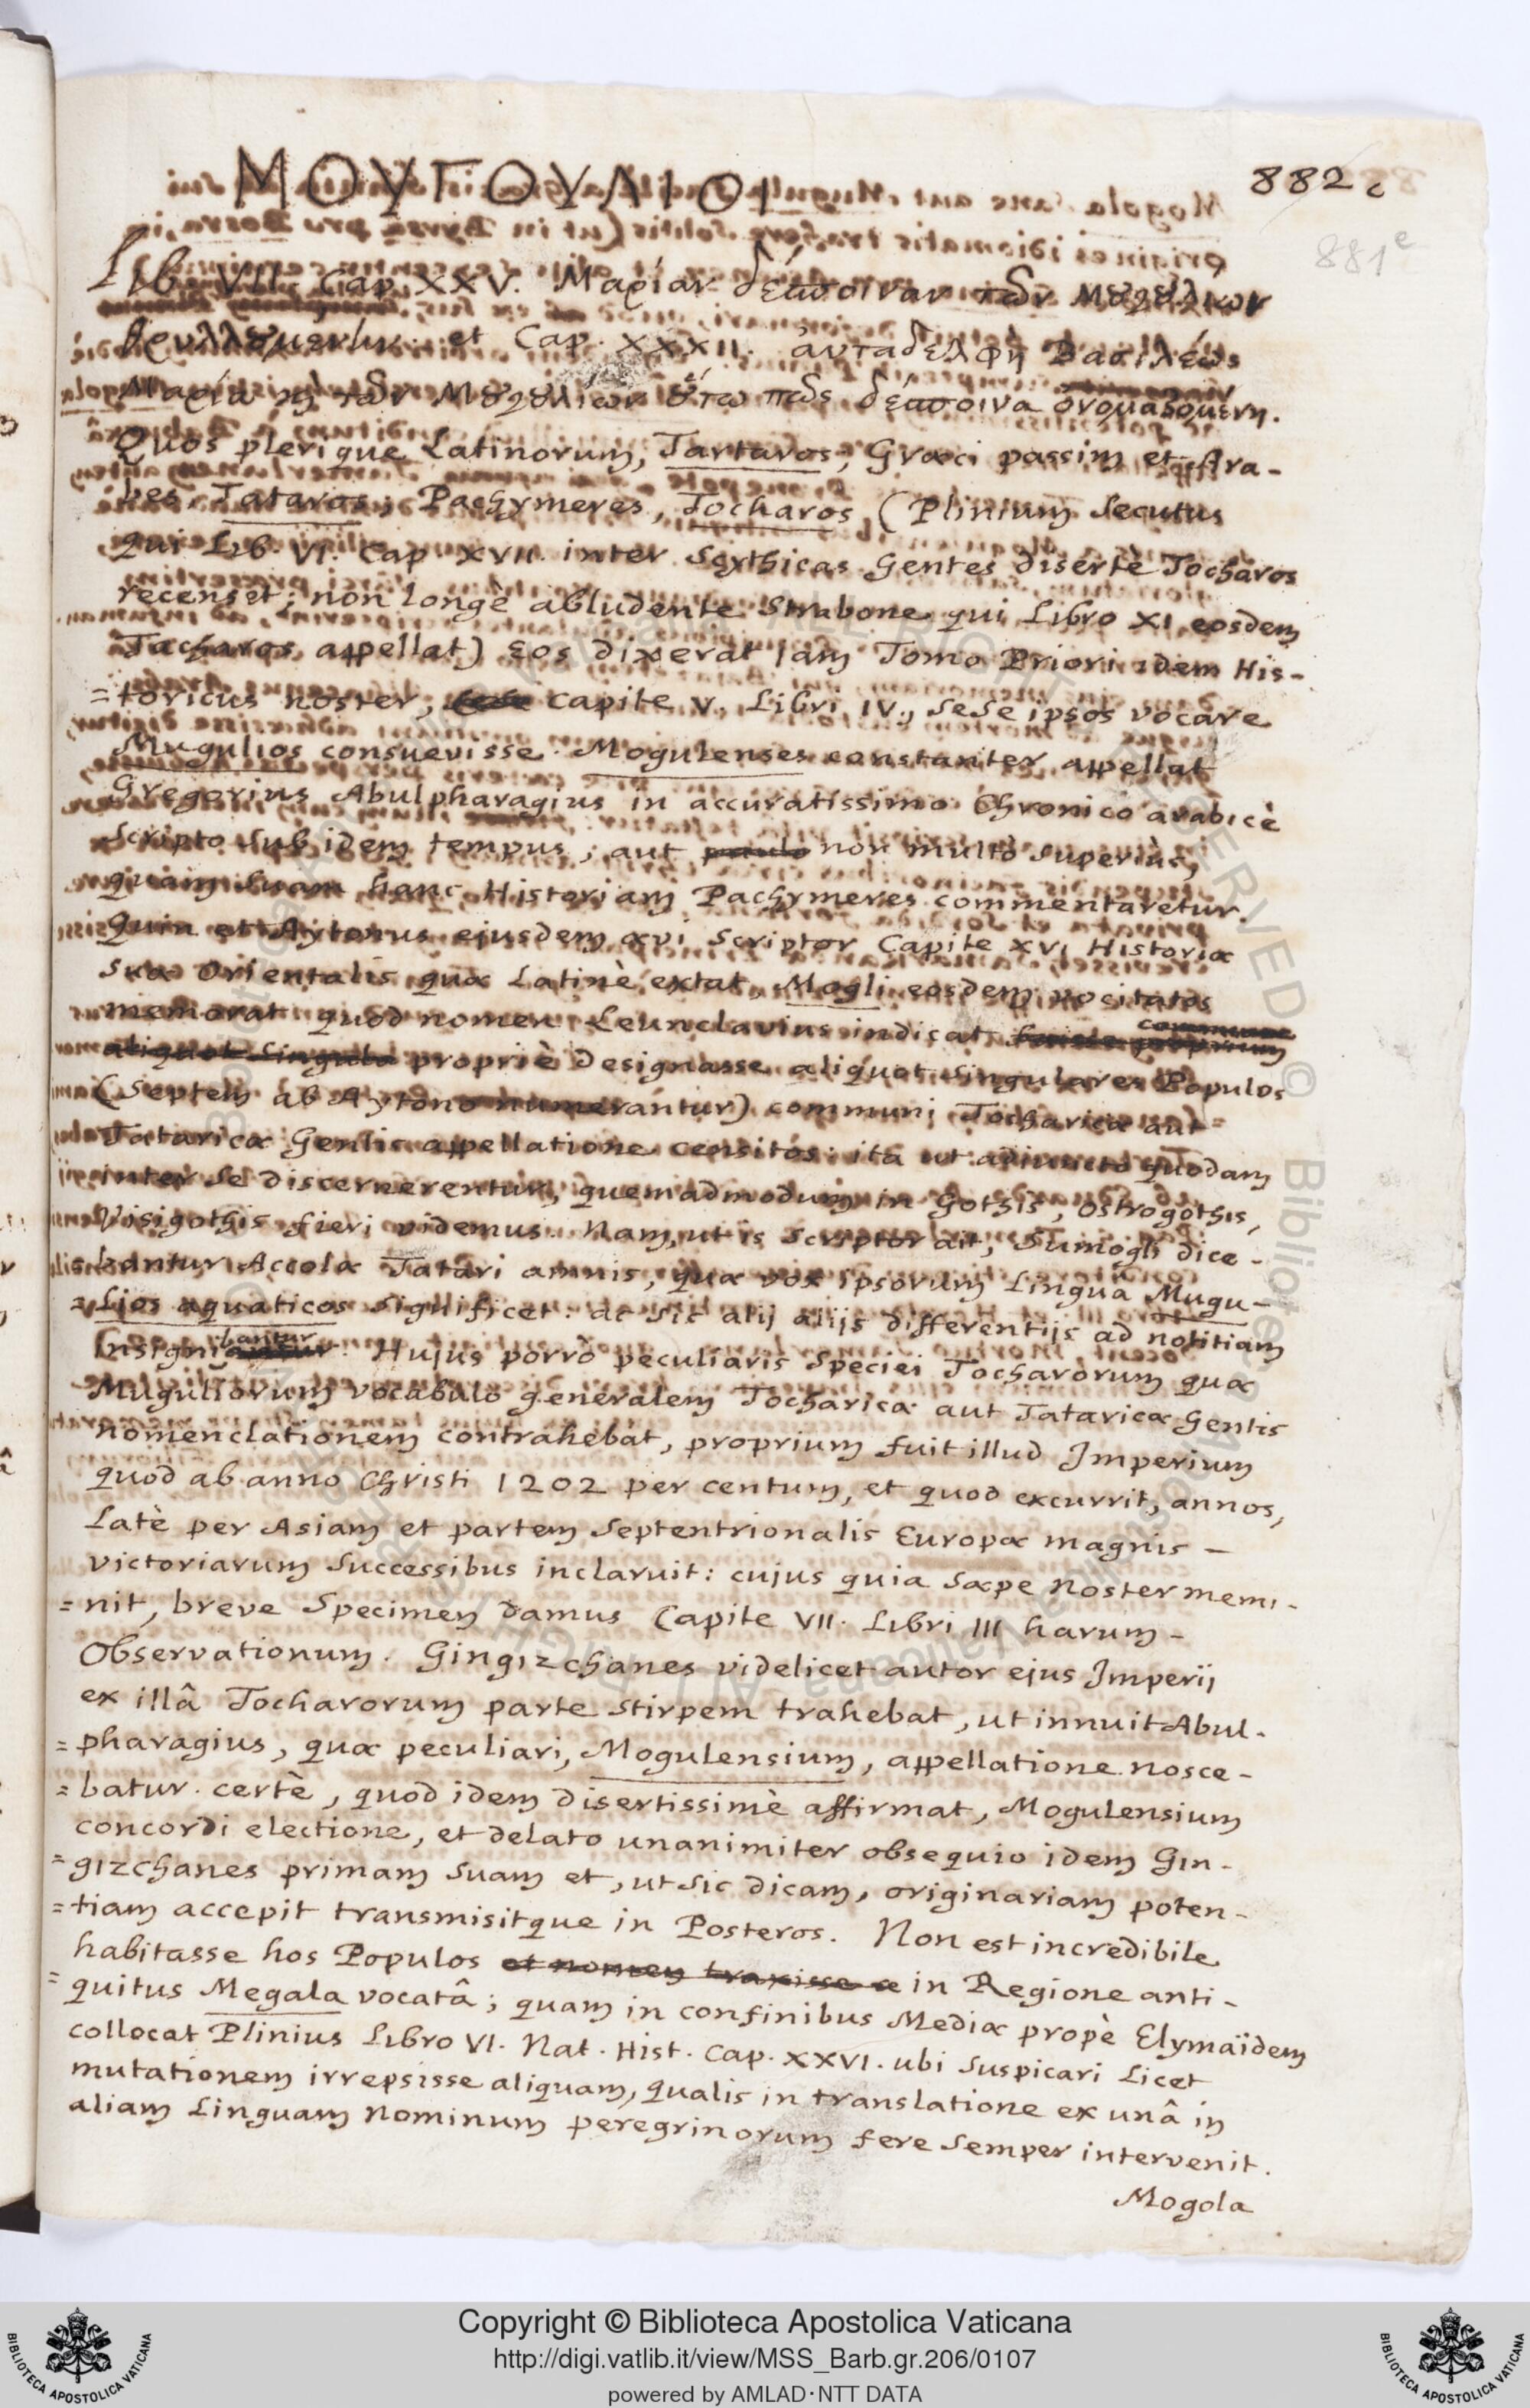 ΜΟΥΓΟΥΛΙΟΙ
882 c
881 e
Lib VII Cap. XXV. Μαρίαν δέσποιναν τῶν Μουγουλίων
θρυλλουμένην. et Cap. XXXII. ἀυταδέλφη Βασιλέως
Μαρία ἡ τῶν Μουγουλίων οὕτω πως δέσποινα ὀνομαζομένη.
Quos plerique Latinorum, Tartaros, Græci passim et Ara-
bes Tataros, Pachymeres, Tocharos (Plinium secutus
qui Lib. VI. Cap XVII inter Scythicas Gentes disertè Tocharos
recenset; non longè abludente Strabone qui Libro XI eosdem
Tacharos appellat) eos dixerat iam Tomo Priori idem His-
=toricus noster, capite V. Libri IV., sese ipsos vocare
Mugulios consuevisse. Mogulenses constanter appellat
Gregorius Abulpharagius in accuratissimo Chronico arabicè
scripto sub idem tempus, aut paulo non multo superiùs,
quam suam hanc Historiam Pachymeres commentaretur.
Quin et Aytonus ejusdem ævi scriptor Capite XVI Historiæ
suæ Orientalis quæ Latinè extat, Mogli eosdem vocitatos
memorat quod nomen Leunclavius indicat
aliquot singula propriè designasse aliquot singulares Populos
(septem ab Aytono numerantur) communi Tocharicæ aut
Tataricæ Gentis appellatione censitos: ita ut adiuncto quodam
inter se discernerentur, quemadmodum in Gothis, Ostrogothis,
Visigothis fieri videmus. Nam, ut is scriptor ait, Sumogli dice-
bantur Accolæ Tatari amnis, quæ vox ipsorum Lingua Mugu-
=Lios aquaticos significet: ac sic alij alijs differentijs ad notitiam
insignibantur. Hujus porrò peculiaris speciei Tocharorum quæ
Muguliorum vocabulo generalem Tocharicæ aut Tataricæ Gentis
nomenclationem contrahebat, proprium fuit illud Imperium
quod ab anno Christi 1202 per centum, et quod excurrit, annos,
Latè per Asiam et partem Septentrionalis Europæ magnis –
victoriarum successibus inclaruit: cujus quia sæpe noster memi-
=nit, breve specimen damus Capite VII. Libri III harum –
Observationum. Gingizchanes videlicet autor ejus Imperij
ex illâ Tocharorum parte stirpem trahebat, ut innuit Abul-
=pharagius, quæ peculiari, Mogulensium, appellatione nosce-
=batur. certè, quod idem disertissimè affirmat, Mogulensium
concordi electione, et delato unanimiter obsequio idem Gin-
=gizchanes primam suam et, ut sic dicam, originariam poten-
=tiam accepit transmisitque in Posteros. Non est incredibile
habitasse hos Populos et nomen traxisse a in Regione anti-
=quitus Megala vocatâ; quam in confinibus Mediæ propè Elymaïdem
collocat Plinius Libro VI. Nat. Hist. Cap. XXVI. ubi suspicari Licet
mutationem irrepsisse aliquam, qualis in translatione ex unâ in
aliam Linguam nominum peregrinorum fere semper intervenit.
Mogola
Copyright © Biblioteca Apostolica Vaticana
http://digi.vatlib.it/view/MSS_Barb.gr.206/0107
powered by AMLAD·NTT DATA
BIBLIOTECA APOSTOLICA VATICANA
BIBLIOTECA APOSTOLICA VATICANA